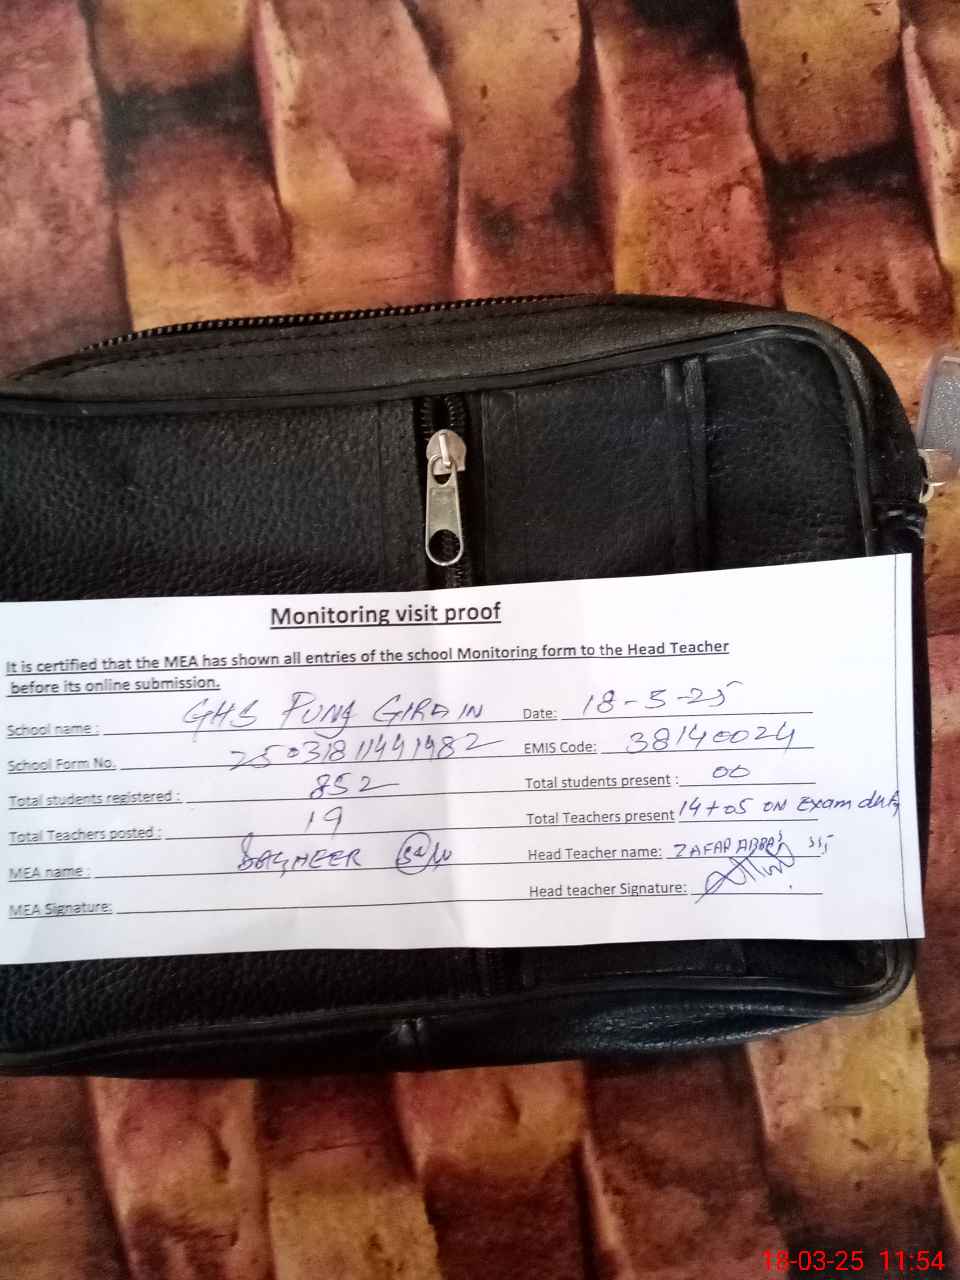 Monitoring visit proof
It is certified that the MEA has shown all entries of the school Monitoring form to the Head Teacher
before its online submission.
School name : GHS PUNJ GIRAIN Date: 18-3-25
School Form No. 25031811441482 EMIS Code: 38140024
Total students registered : 852 Total students present : 00
Total Teachers posted : 19 Total Teachers present 14+05 ON Exam duty
MEA name : Head Teacher name: ZAFAR ABBAS
MEA Signature: Head teacher Signature:
18-03-25 11:54